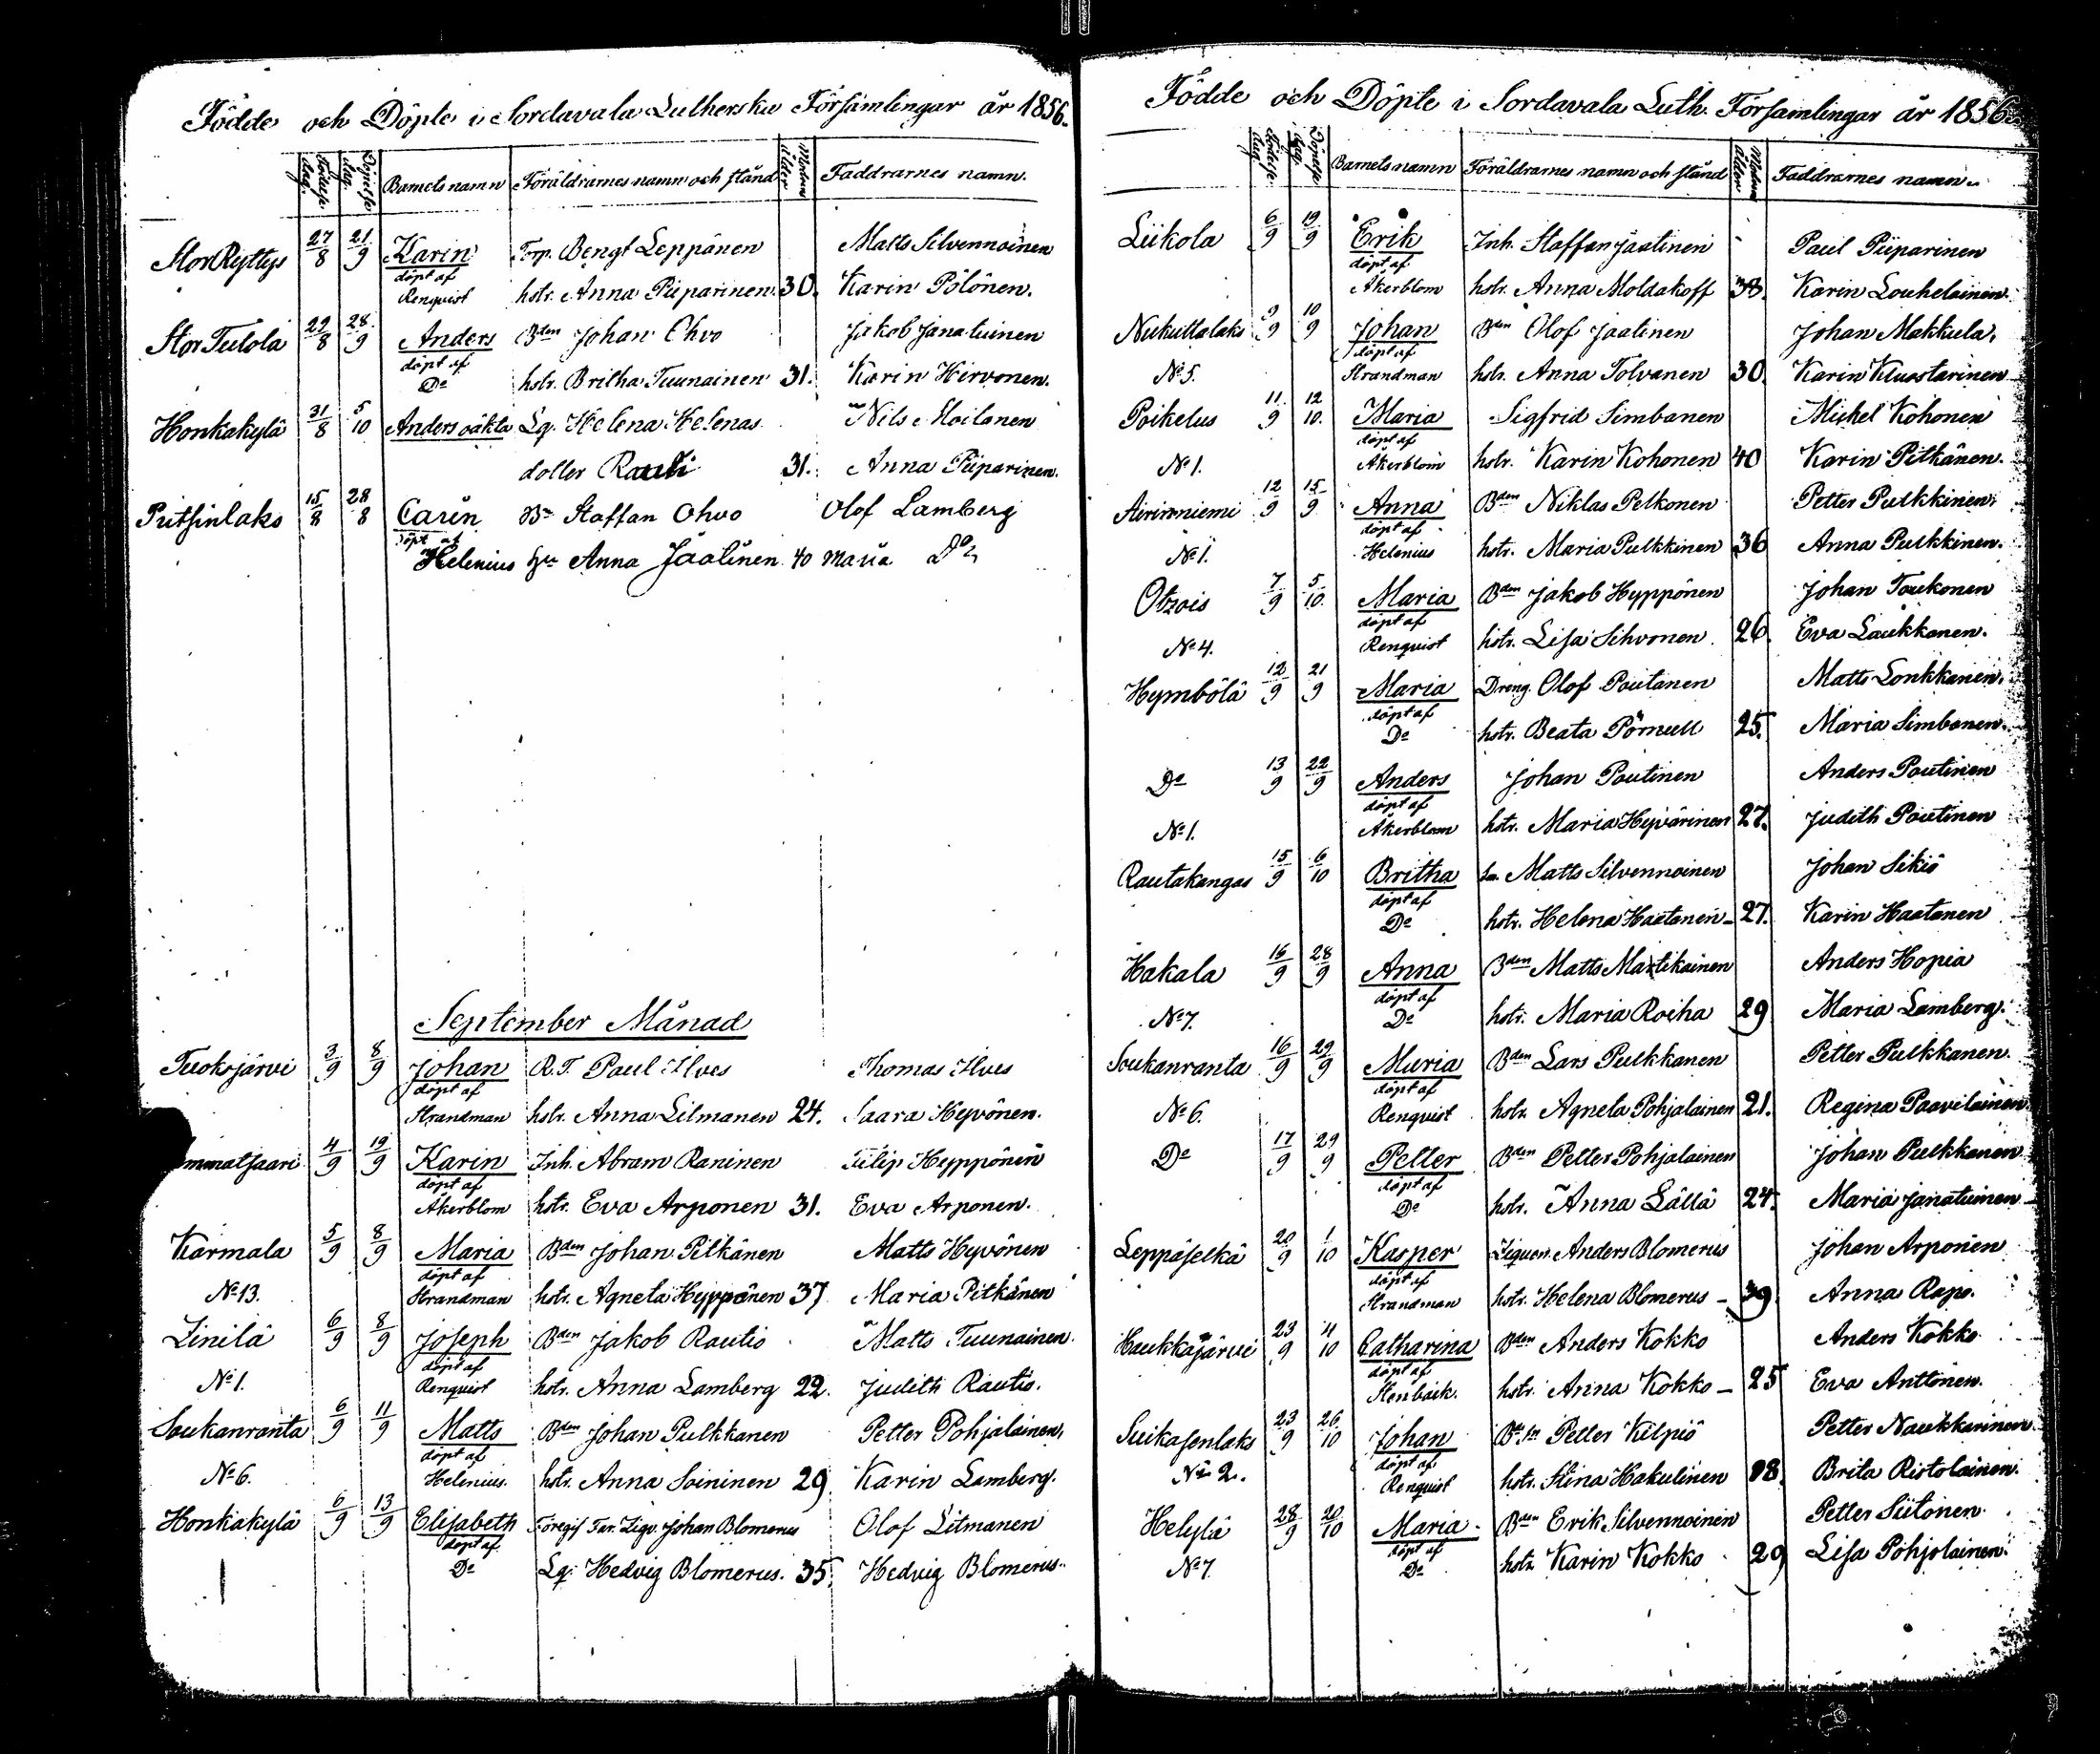 Födde och Döpte i Sordavala Lutherska Församlingar år 1856.
Födelse dag. Döpelse dag. Barnets namn Föräldrarnes namn och stånd Modrens ålder Faddrarnes namn.
Stor Rÿttys 27/8 21/9 Karin Torp. Bengt Leppänen Matts Silvennoinen
döpt af Renquist hstr. Anna Piiparinen 30. Karin Pölönen.
Stor Tulola 29/8 28/9 Anders Bden Johan Ohvo Jakob Janatuinen
döpt af Do hstr. Britha Tuunainen 31. Karin Hirvonen.
Honkakylä 31/8 5/10 Anders oäkta Lq. Helena Helenas Nils Moilanen
dotter Rauti 31. Anna Piiparinen.
Putsinlaks 15/8 28/8 Carin Bn Staffan Ohvo Olof Lamberg
döpt af Helenius hu Anna Jaatinen 40 Maria Do
September Månad
Tuoksjärvi 3/9 8/9 Johan R.T. Paul Ilves Thomas Ilves
döpt af Strandman hstr. Anna Litmanen 24. Saara Hyvönen.
mmatsaari 4/9 19/9 Karin Inh. Abram Raninen Filip Hyppönen
döpt af Åkerblom hstr. Eva Arponen 31. Eva Arponen.
Karmala 5/9 8/9 Maria Bden Johan Pitkänen Matts Hyvönen
No 13. döpt af Strandman hstr. Agneta Hyppönen 37 Maria Pitkänen
Linilä 6/9 8/9 Joseph Bden Jakob Rautio Matts Tuunainen.
No 1. döpt af Renquist hstr. Anna Lamberg 22. Judith Rautio.
Soukanranta 6/9 11/9 Matts Bden Johan Pulkkanen Petter Pohjalainen,
No 6. döpt af Helenius. hstr. Anna Soininen 29. Karin Lamberg.
Honkakylä 6/9 13/9 Elisabeth Föregif Far. Liqv. Johan Blomerus Olof Litmanen
döpt af Do Lq. Hedvig Blomerus. 35. Hedvig Blomerus.
Födde och Döpte i Sordavala Luth. Församlingar år 1856.
Födelse dag. Döpelse dag. Barnets namn Föräldrarnes namn och stånd Modrens ålder Faddrarnes namn.
Liikola 6/9 19/9 Erik Inh. Staffan Jaatinen Paul Piiparinen
döpt af Åkerblom hstr. Anna Moldakoff 38. Karin Louhelainen.
Nukuttalaks 9/9 10/9 Johan Bden Olof Jaatinen Johan Makkula.
No 5. döpt af Strandman hstr. Anna Tolvanen 30. Karin Kluostarinen
Poikelus 11/9 12/10. Maria Sigfrid Simbanen Mickel Kohonen
No 1. döpt af Åkerblom hstr. Karin Kohonen 40 Karin Pitkänen.
Airinniemi 12/9 15/9 Anna Bden Niklas Pelkonen Petter Pulkkinen.
No 1. döpt af Helenius hstr. Maria Pulkkinen 36 Anna Pulkkinen.
Otzois 7/9 5/10. Maria Bden Jakob Hyppönen Johan Toukonen
No 4. döpt af Renquist hstr. Lisa Sihvonen 26. Eva Laukkanen.
Hymbölä 12/9 21/9 Maria Dreng. Olof Poutanen Matts Lonkkanen.
döpt af Do hstr. Beata Pörnull 25. Maria Simbanen.
Do 13/9 22/9 Anders Johan Poutinen Anders Poutinen
No 1. döpt af Åkerblom hstr. Maria Hyvärinen 27. Judith Poutinen
Rautakangas 15/9 6/10 Britha Matts Silvennoinen Johan Sikiö
döpt af Do hstr. Helena Haatanen 27. Karin Haatanen
Hakala 16/9 28/9 Anna Bden Matts Martikainen Anders Hopia
No 7. döpt af Do hstr. Maria Roiha 29 Maria Lamberg.
Soukanranta 16/9 29/9 Maria Bden Lars Pulkkanen Petter Pulkkanen.
No 6. döpt af Renquist hstr. Agneta Pohjalainen 21. Regina Paavilainen.
Do 17/9 29/9 Petter Bden Petter Pohjalainen Johan Pulkkanen
döpt af Do hstr. Anna Lättä 24. Maria Janatuinen
Leppäselkä 20/9 1/10 Kasper Liquen. Anders Blomerus Johan Arponen
döpt af Strandman hstr. Helena Blomerus 39 Anna Rapo.
Haukkajärvi 23/9 11/10 Catharina Bden Anders Kokko Anders Kokko
döpt af Stenbäck. hstr. Anna Kokko 25 Eva Anttonen.
Suikasenlaks 23/9 26/10 Johan Bd. sn Petter Kilpiö Petter Naukkarinen
No 2. döpt af Renquist hstr. Stina Hakulinen Brita Ristolainen.
Helylä 28/9 20/10 Maria Bden Erik Silvennoinen Petter Siitonen
No 7. döpt af Do hstr. Karin Kokko 29 Lisa Pohjolainen.